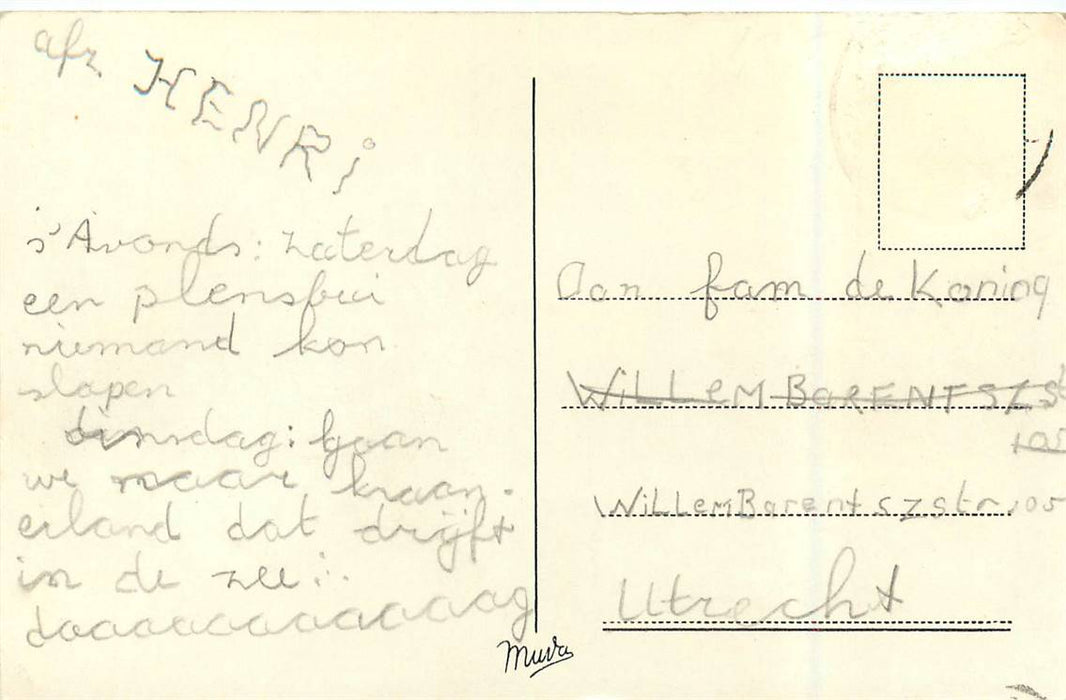 afz HENRi
's'Avonds: zaterdag
een plensbui
niemand kon
slapen
dinsdag: gaan
we naar kraan-
eiland dat drijft
in de zee:.
daaaaaaaaaaaag
Aan fam de Koning
WiLLeM BARENTSZSt
105
WiLLemBarentszstr,105
Utrecht
Muva